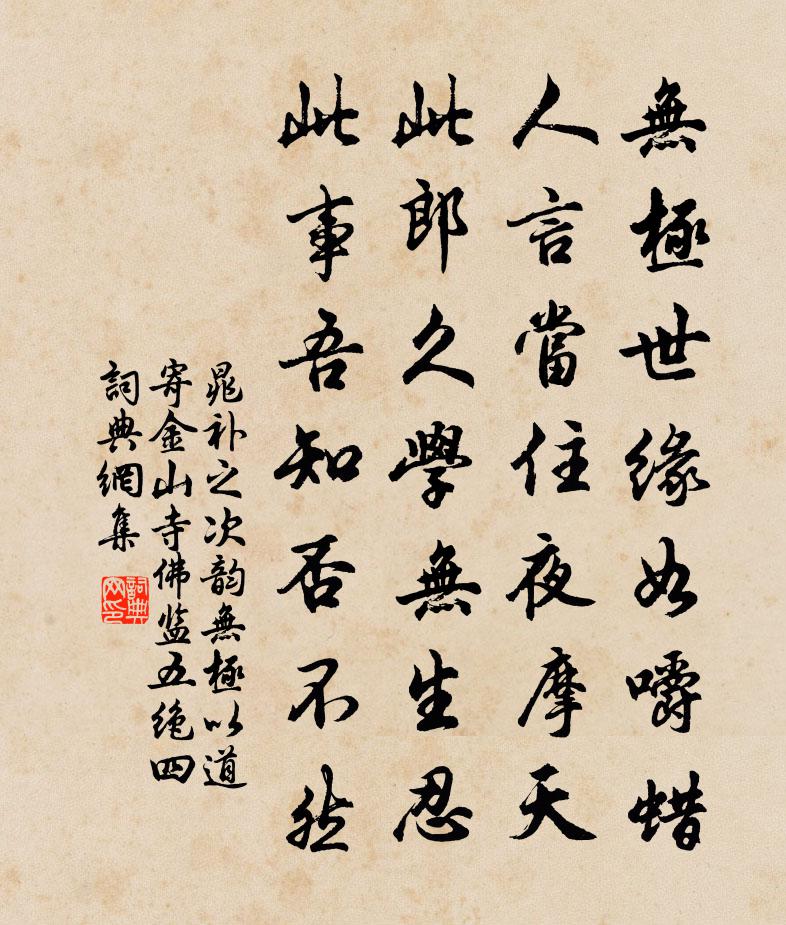 無極世緣如嚼蜡
人言當住夜摩天
此郎久學無生忍
此事吾知否不然
晁补之次韵無極以道
寄金山寺佛监五絶四
詞典網集
詞典网印